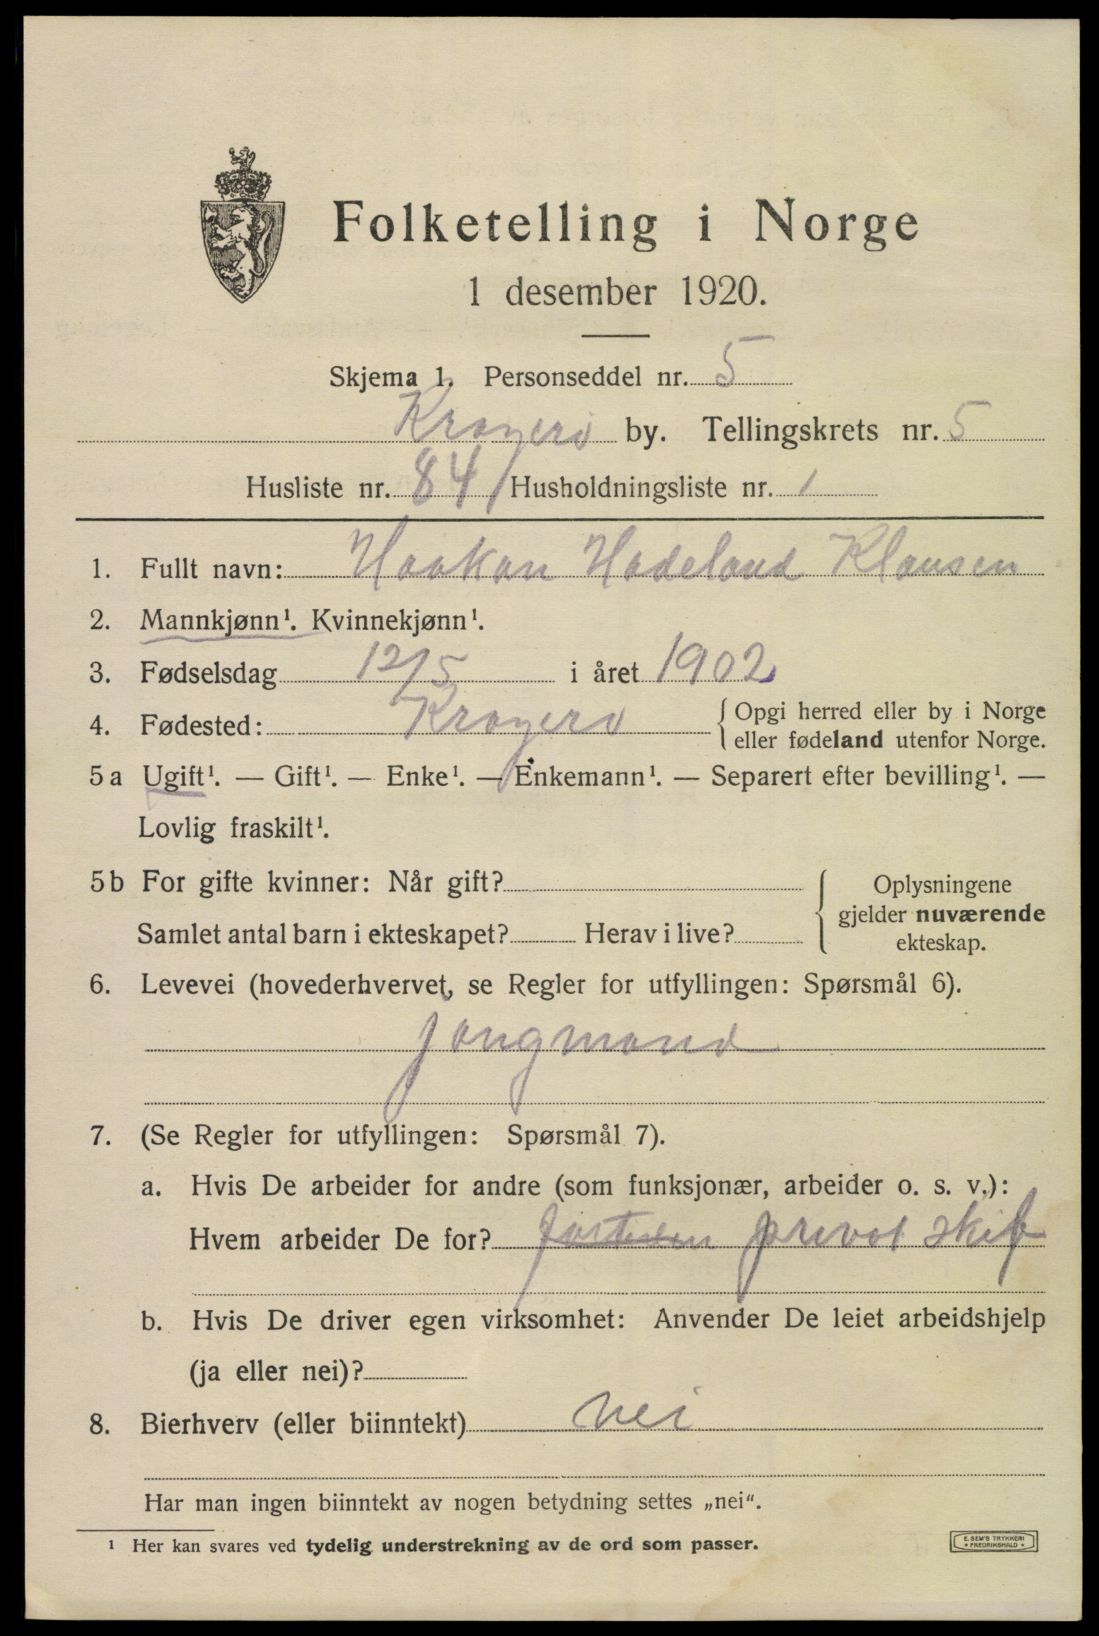 Folketelling i Norge
1 desember 1920.
Skjema 1. Personseddel nr. 5
Kragerø by. Tellingskrets nr. 5
Husliste nr. 84 Husholdningsliste nr. 1
1. Fullt navn: Haakan Hadeland Klausen
2. Mannkjønn¹. Kvinnekjønn¹.
3. Fødselsdag 12/5 i året 1902
4. Fødested: Kragerø { Opgi herred eller by i Norge
eller fødeland utenfor Norge.
5 a Ugift¹. — Gift¹. — Enke¹. — Enkemann¹. — Separert efter bevilling¹. —
Lovlig fraskilt¹.
5 b For gifte kvinner: Når gift? { Oplysningene
gjelder nuværende
Samlet antal barn i ekteskapet? Herav i live? ekteskap.
6. Levevei (hovederhvervet, se Regler for utfyllingen: Spørsmål 6).
Jongmand
7. (Se Regler for utfyllingen: Spørsmål 7).
a. Hvis De arbeider for andre (som funksjonær, arbeider o. s. v.):
Hvem arbeider De for? privat skib
b. Hvis De driver egen virksomhet: Anvender De leiet arbeidshjelp
(ja eller nei)?
8. Bierhverv (eller biinntekt) nei
Har man ingen biinntekt av nogen betydning settes „nei".
¹ Her kan svares ved tydelig understrekning av de ord som passer.
E. SEM'S TRYKKERI
• FREDRIKSHALD •